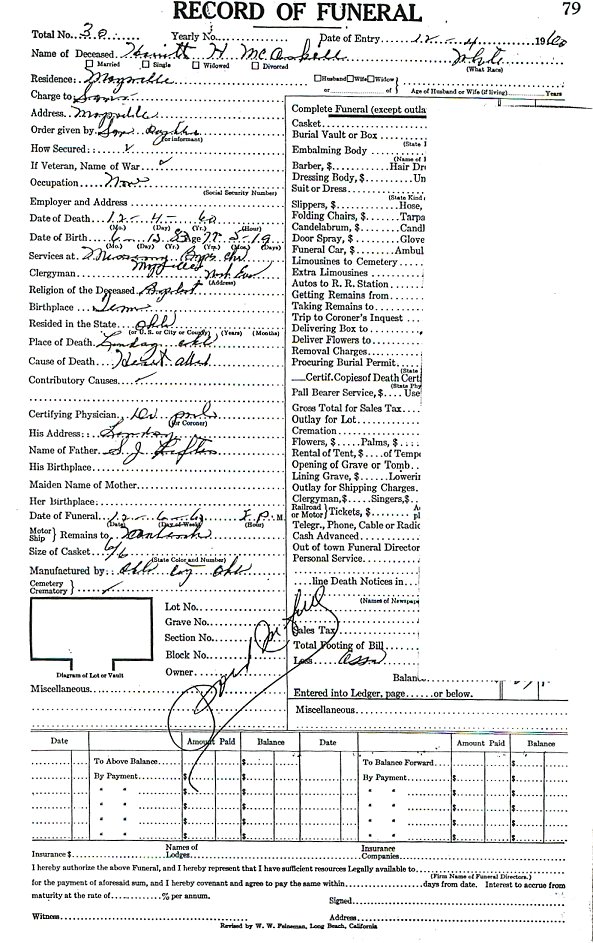 RECORD OF FUNERAL 79
Total No. 30 Yearly No. Date of Entry 12 - 4 - 1960
Name of Deceased H. McCaskell White
Married Single Widowed Divorced (What Race)
Residence: Maysville Husband Wife Widow
or of Age of Husband or Wife (if living) Years
Charge to Same
Address Maysville
Order given by Son
(or informant)
How Secured:
If Veteran, Name of War
Occupation None
(Social Security Number)
Employer and Address
Date of Death 12 - 4 - 60
(Mo.) (Day) (Yr.) (Hour)
Date of Birth 6 - 15 83 Age 77 5 19
(Mo.) (Day) (Yr.) (Yrs.) (Mos.) (Days)
Services at
Clergyman
(Address)
Religion of the Deceased Baptist
Birthplace Tenn
Resided in the State Okla
(or U. S. or City or County) (Years) (Months)
Place of Death Lindsay Okla
Cause of Death Heart attack
Contributory Causes
Certifying Physician, Dr
(or Coroner)
His Address: Lindsay
Name of Father S. J.
His Birthplace
Maiden Name of Mother
Her Birthplace
Date of Funeral 12 - 6 - 60 P. M
(Date) (Day of Week) (Hour)
Motor Ship } Remains to
Size of Casket 6/6
(State Color and Number)
Manufactured by Okla Okla
Cemetery
Crematory }
Lot No.
Grave No.
Section No.
Block No.
Owner
Diagram of Lot or Vault
Miscellaneous
Paid in full
Complete Funeral (except outla
Casket
Burial Vault or Box
(State I
Embalming Body
(Name of I
Barber, $ Hair Dr
Dressing Body, $ Un
Suit or Dress
(State Kind
Slippers, $ Hose,
Folding Chairs, $ Tarpa
Candelabrum, $ Candl
Door Spray, $ Glove
Funeral Car, $ Ambul
Limousines to Cemetery
Extra Limousines
Autos to R. R. Station
Getting Remains from
Taking Remains to
Trip to Coroner's Inquest
Delivering Box to
Deliver Flowers to
Removal Charges
(State
Procuring Burial Permit
Certif. Copies of Death Certi
(State Phy
Pall Bearer Service, $ Use
Gross Total for Sales Tax
Outlay for Lot
Cremation
Flowers, $ Palms, $
Rental of Tent, $ of Tempo
Opening of Grave or Tomb
Lining Grave, $ Lowerin
Outlay for Shipping Charges
Clergyman, $ Singers, $
Railroad or Motor } Tickets, $ A
Telegr., Phone, Cable or Radio
Cash Advanced
Out of town Funeral Director
Personal Service
line Death Notices in
(Names of Newspape
Sales Tax
Total Footing of Bill
Less Assn
Balanc
Entered into Ledger, page or below.
Miscellaneous
Date Amount Paid Balance Date Amount Paid Balance
To Above Balance $ To Balance Forward $
By Payment $ $ By Payment $ $
" " $ $ " " $ $
" " $ $ " " $ $
" " $ $ " " $ $
" " $ $ " " $ $
Insurance $ Names of Lodges Insurance Companies
I hereby authorize the above Funeral, and I hereby represent that I have sufficient resources Legally available to
(Firm Name of Funeral Director.)
for the payment of aforesaid sum, and I hereby covenant and agree to pay the same within days from date. Interest to accrue from
maturity at the rate of % per annum. Signed
Witness Address
Revised by W. W. Feineman, Long Beach, California